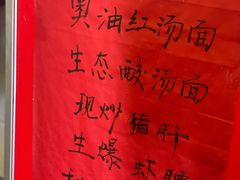 奥油红汤面
生态酸汤面
现炒猪肝
生爆虾腰